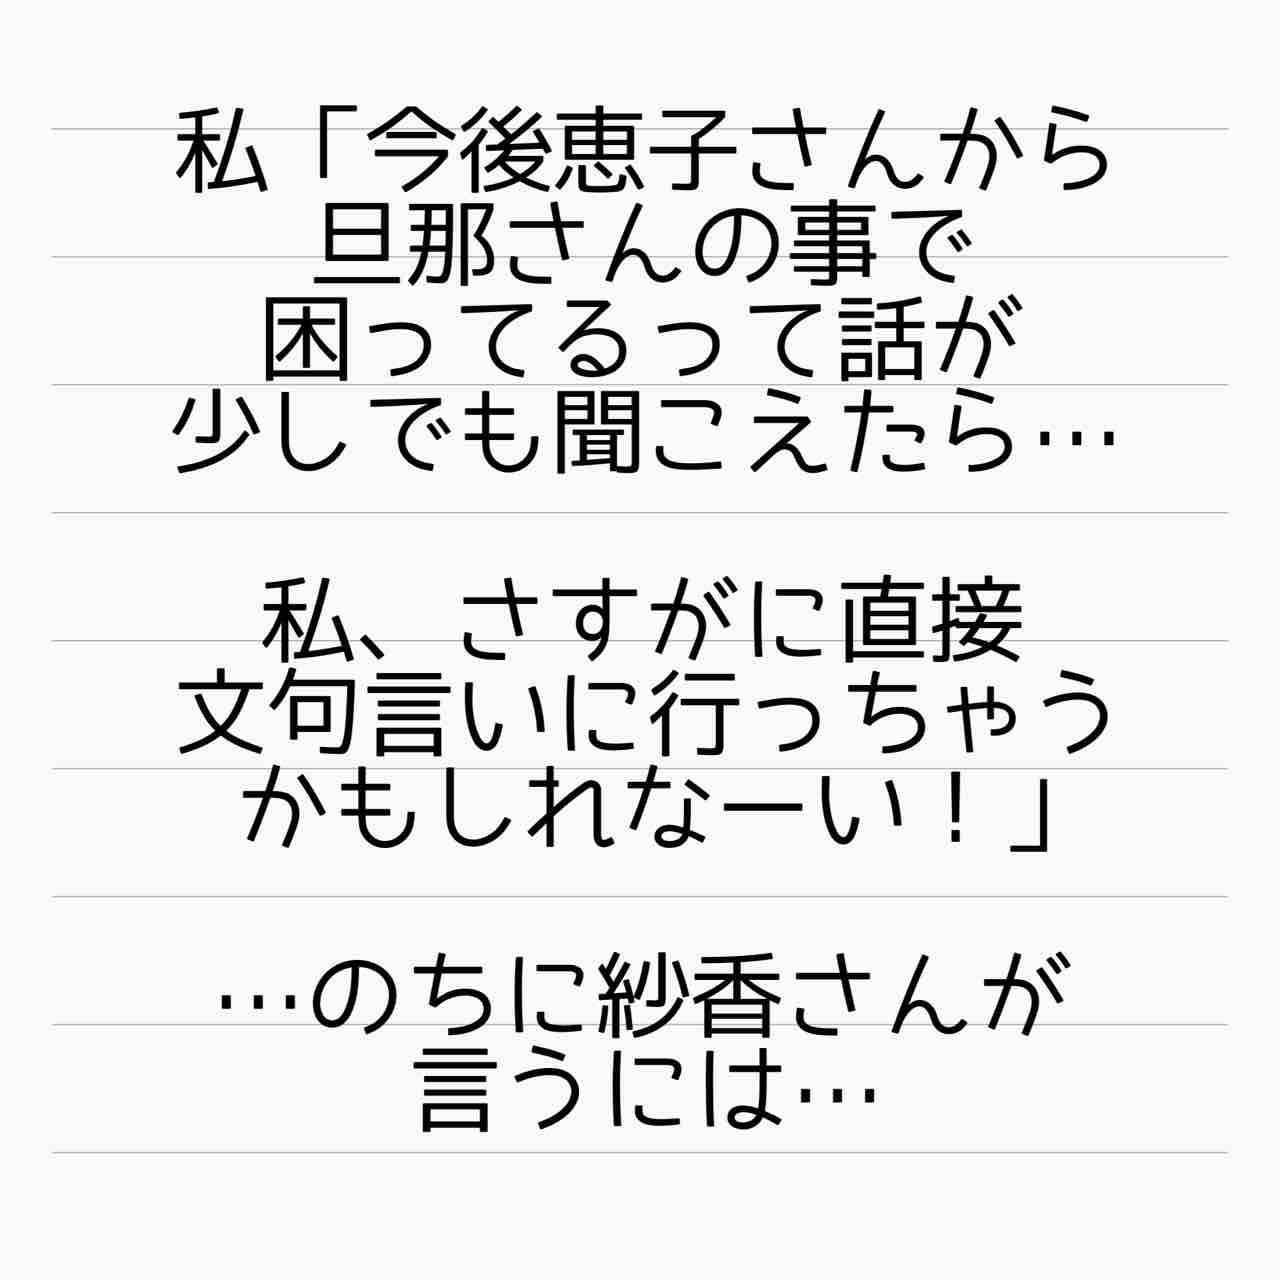 私「今後恵子さんから
旦那さんの事で
困ってるって話が
少しでも聞こえたら…
私、さすがに直接
文句言いに行っちゃう
かもしれなーい！」
…のちに紗香さんが
言うには…